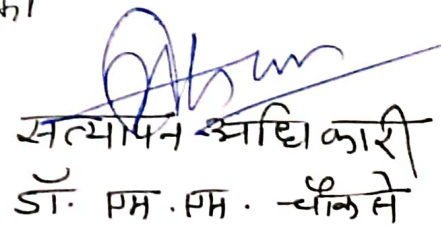 सत्यापन अधिकारी
डॉ. एम. एम. चौकसे